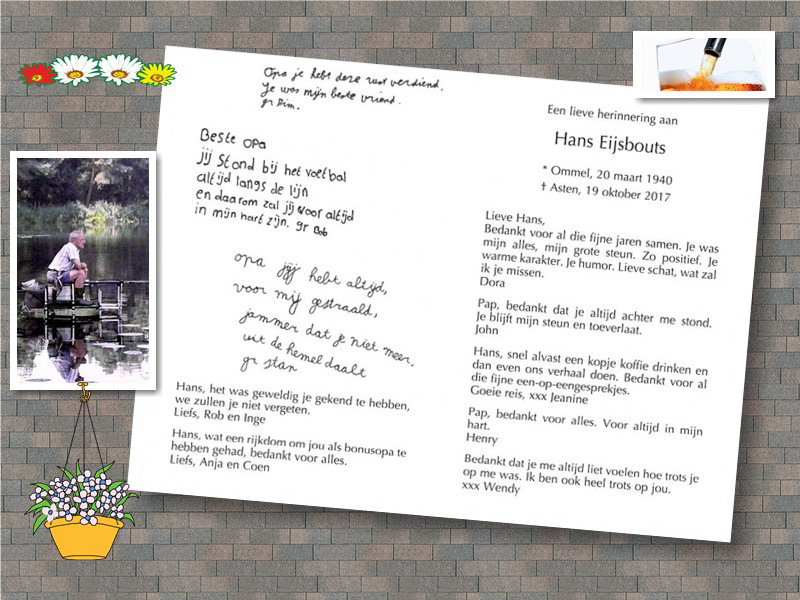 Opa je hebt deze rust verdiend.
Je was mijn beste vriend.
gr Pim.
Beste opa
jij stond bij het voetbal
altijd langs de lijn
en daarom zal jij voor altijd
in mijn hart zijn. gr Bob
opa jij hebt altijd,
voor mij gestraald,
jammer dat je niet meer,
uit de hemel daalt
gr stan
Hans, het was geweldig je gekend te hebben,
we zullen je niet vergeten.
Liefs, Rob en Inge
Hans, wat een rijkdom om jou als bonusopa te
hebben gehad, bedankt voor alles.
Liefs, Anja en Coen
Een lieve herinnering aan
Hans Eijsbouts
* Ommel, 20 maart 1940
† Asten, 19 oktober 2017
Lieve Hans,
Bedankt voor al die fijne jaren samen. Je was
mijn alles, mijn grote steun. Zo positief. Je
warme karakter. Je humor. Lieve schat, wat zal
ik je missen.
Dora
Pap, bedankt dat je altijd achter me stond.
Je blijft mijn steun en toeverlaat.
John
Hans, snel alvast een kopje koffie drinken en
dan even ons verhaal doen. Bedankt voor al
die fijne een-op-eengesprekjes.
Goeie reis, xxx Jeanine
Pap, bedankt voor alles. Voor altijd in mijn
hart.
Henry
Bedankt dat je me altijd liet voelen hoe trots je
op me was. Ik ben ook heel trots op jou.
xxx Wendy